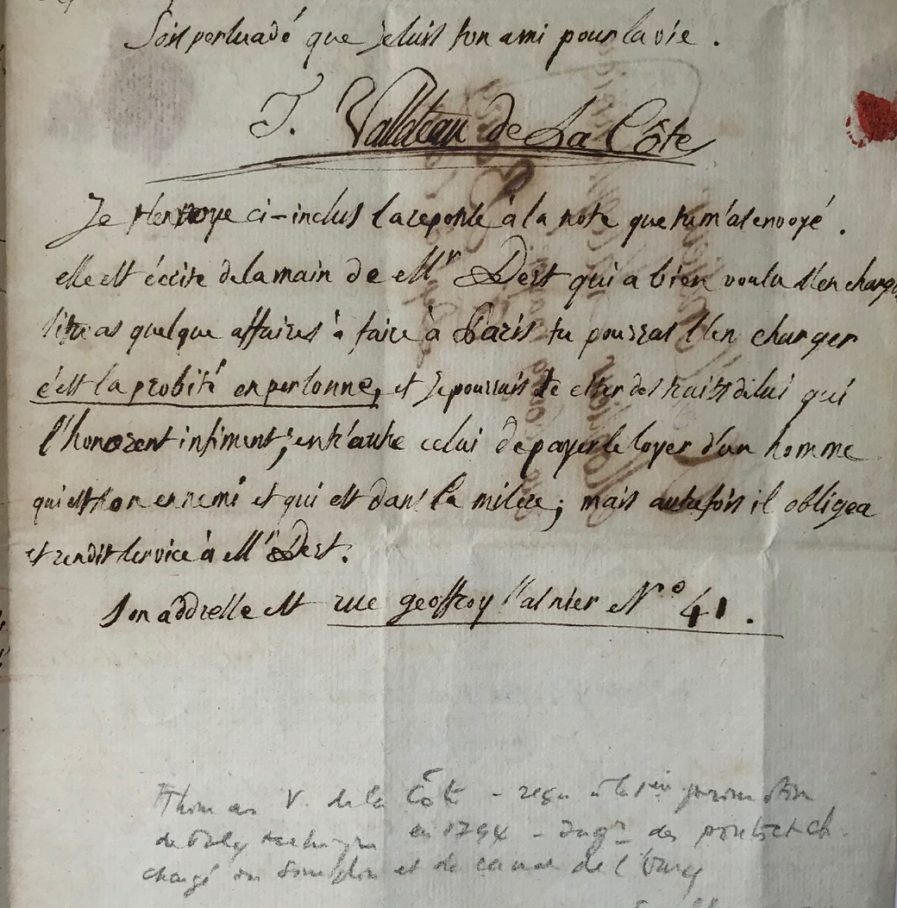 Sois persuadé que je suis ton ami pour la vie.
T. Valleteau de La Côte
Je t'envoye ci-inclus la reponse à la note que tu m'as envoyé.
elle est écrite de la main de Mr Dest qui a bien voulu s'en charger
si tu as quelque affaires à faire à Paris tu pourras l'en charger
c'est la probité en personne, et je pourrais te citer des traits de lui qui
l'honorent infiment; entr'autre celui de payer le loyer d'un homme
qui est son ennemi et qui est dans la misere; mais autrefois il obligea
et rendit service à Mr Dest.
Son addresse est rue geoffroy l'asnier No 41.
Thomas V. de la Côte - reçu à la 1ère promotion
de Polytechnique en 1794 - Ingr des ponts et ch.
chargé du Simplon et de canal de l'Ourcq